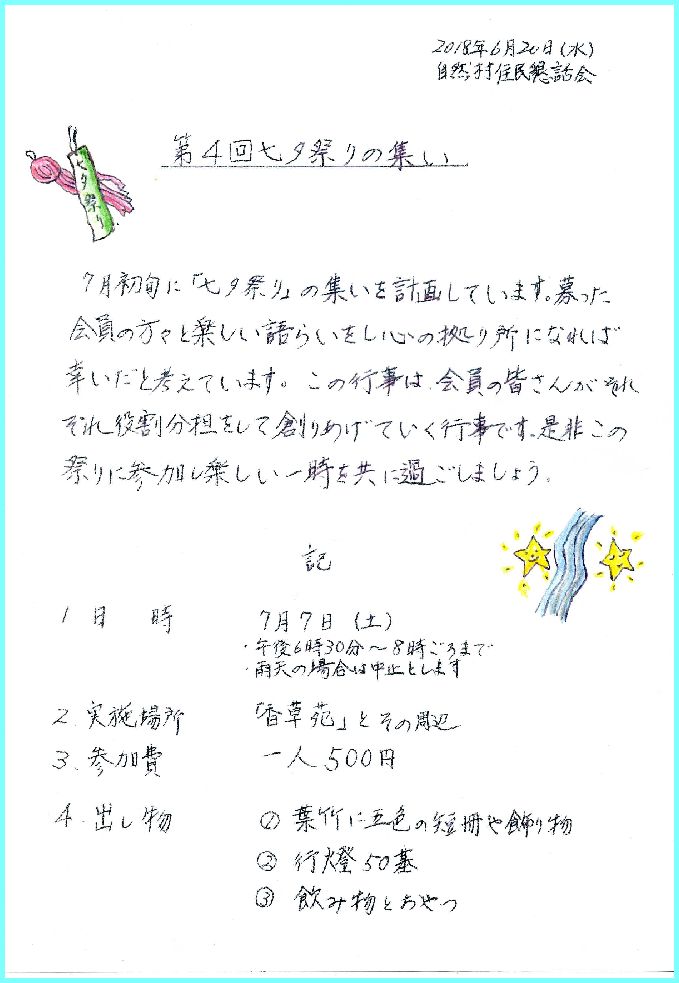 2018年6月20日(水)
自然村住民懇話会
第4回七夕祭りの集い
七夕祭り
7月初旬に「七夕祭り」の集いを計画しています。募った
会員の方々と楽しい語らいをし心の拠り所になれば
幸いだと考えています。この行事は、会員の皆さんがそれ
ぞれ役割分担をして創りあげていく行事です。是非この
祭りに参加し楽しい一時を共に過ごしましょう。
記
1 日 時 7月7日(土)
・午後6時30分〜8時ごろまで
・雨天の場合は中止とします
2. 実施場所 「香草苑」とその周辺
3. 参加費 一人500円
4. 出し物 ① 葉竹に五色の短冊や飾り物
② 行燈50基
③ 飲み物とおやつ